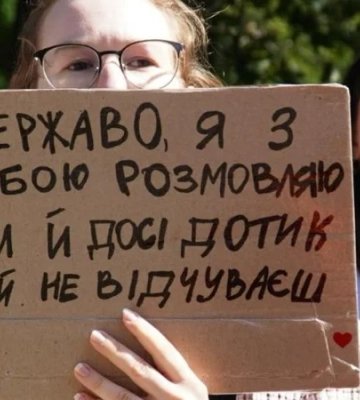 ЕРЖАВО, Я З
БОЮ РОЗМОВЛЯЮ
Й ДОСІ ДОТИК
Й НЕ ВІДЧУВАЄШ